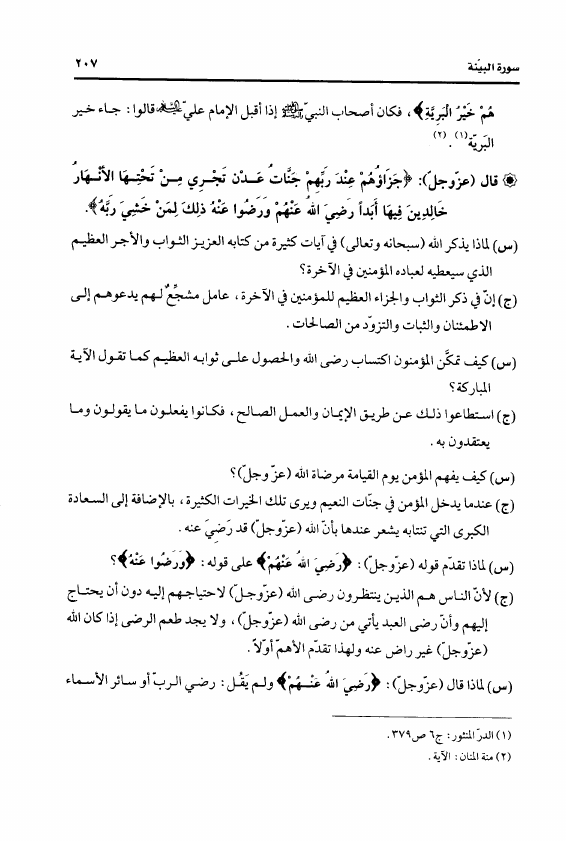 سورة البيّنة ٢٠٧
هُمْ خَيْرُ الْبَرِيَّةِ﴾، فكان أصحاب النبيّ ﷺ إذا أقبل الإمام عليّ قالوا: جاء خير
البريّة(١).(٢)
۞ قال (عزّوجلّ): ﴿جَزَاؤُهُمْ عِنْدَ رَبِّهِمْ جَنَّاتُ عَدْنٍ تَجْرِي مِنْ تَحْتِهَا الأَنْهَارُ
خَالِدِينَ فِيهَا أَبَداً رَضِيَ اللهُ عَنْهُمْ وَرَضُوا عَنْهُ ذلِكَ لِمَنْ خَشِيَ رَبَّهُ﴾.
(س) لماذا يذكر الله (سبحانه وتعالى) في آيات كثيرة من كتابه العزيز الثواب والأجر العظيم
الذي سيعطيه لعباده المؤمنين في الآخرة؟
(ج) إنّ في ذكر الثواب والجزاء العظيم للمؤمنين في الآخرة، عامل مشجِّعٌ لهم يدعوهم إلى
الاطمئنان والثبات والتزوّد من الصالحات.
(س) كيف تمكَّن المؤمنون اكتساب رضى الله والحصول على ثوابه العظيم كما تقول الآية
المباركة؟
(ج) استطاعوا ذلك عن طريق الإيمان والعمل الصالح، فكانوا يفعلون ما يقولون وما
يعتقدون به.
(س) كيف يفهم المؤمن يوم القيامة مرضاة الله (عزّوجلّ)؟
(ج) عندما يدخل المؤمن في جنّات النعيم ويرى تلك الخيرات الكثيرة، بالإضافة إلى السعادة
الكبرى التي تنتابه يشعر عندها بأنّ الله (عزّوجلّ) قد رَضِيَ عنه.
(س) لماذا تقدّم قوله (عزّوجلّ): ﴿رَضِيَ اللهُ عَنْهُمْ﴾ على قوله: ﴿وَرَضُوا عَنْهُ﴾؟
(ج) لأنّ الناس هم الذين ينتظرون رضى الله (عزّوجلّ) لاحتياجهم إليه دون أن يحتاج
إليهم وأنّ رضى العبد يأتي من رضى الله (عزّوجلّ)، ولا يجد طعم الرضى إذا كان الله
(عزّوجلّ) غير راض عنه ولهذا تقدّم الأهمّ أوّلاً.
(س) لماذا قال (عزّوجلّ): ﴿رَضِيَ اللهُ عَنْهُمْ﴾ ولم يَقُل: رضي الربّ أو سائر الأسماء
(١) الدرّ المنثور: ج٦ ص٣٧٩.
(٢) منة المنان: الآية.